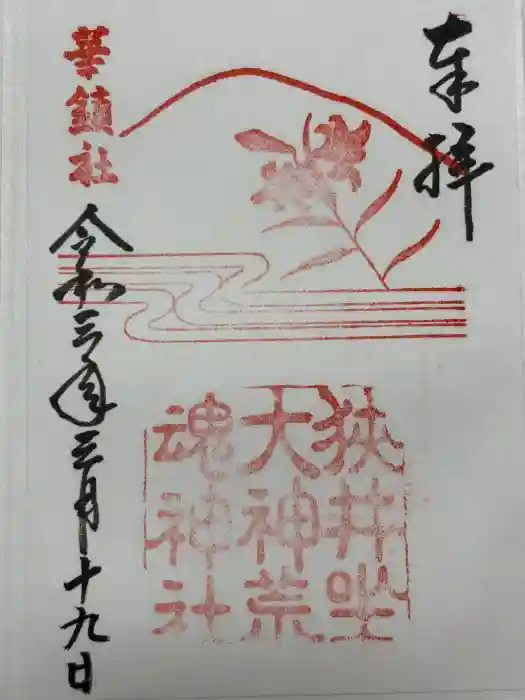 奉拝
華鎮社
令和三年三月十九日
狭井坐
大神荒
魂神社